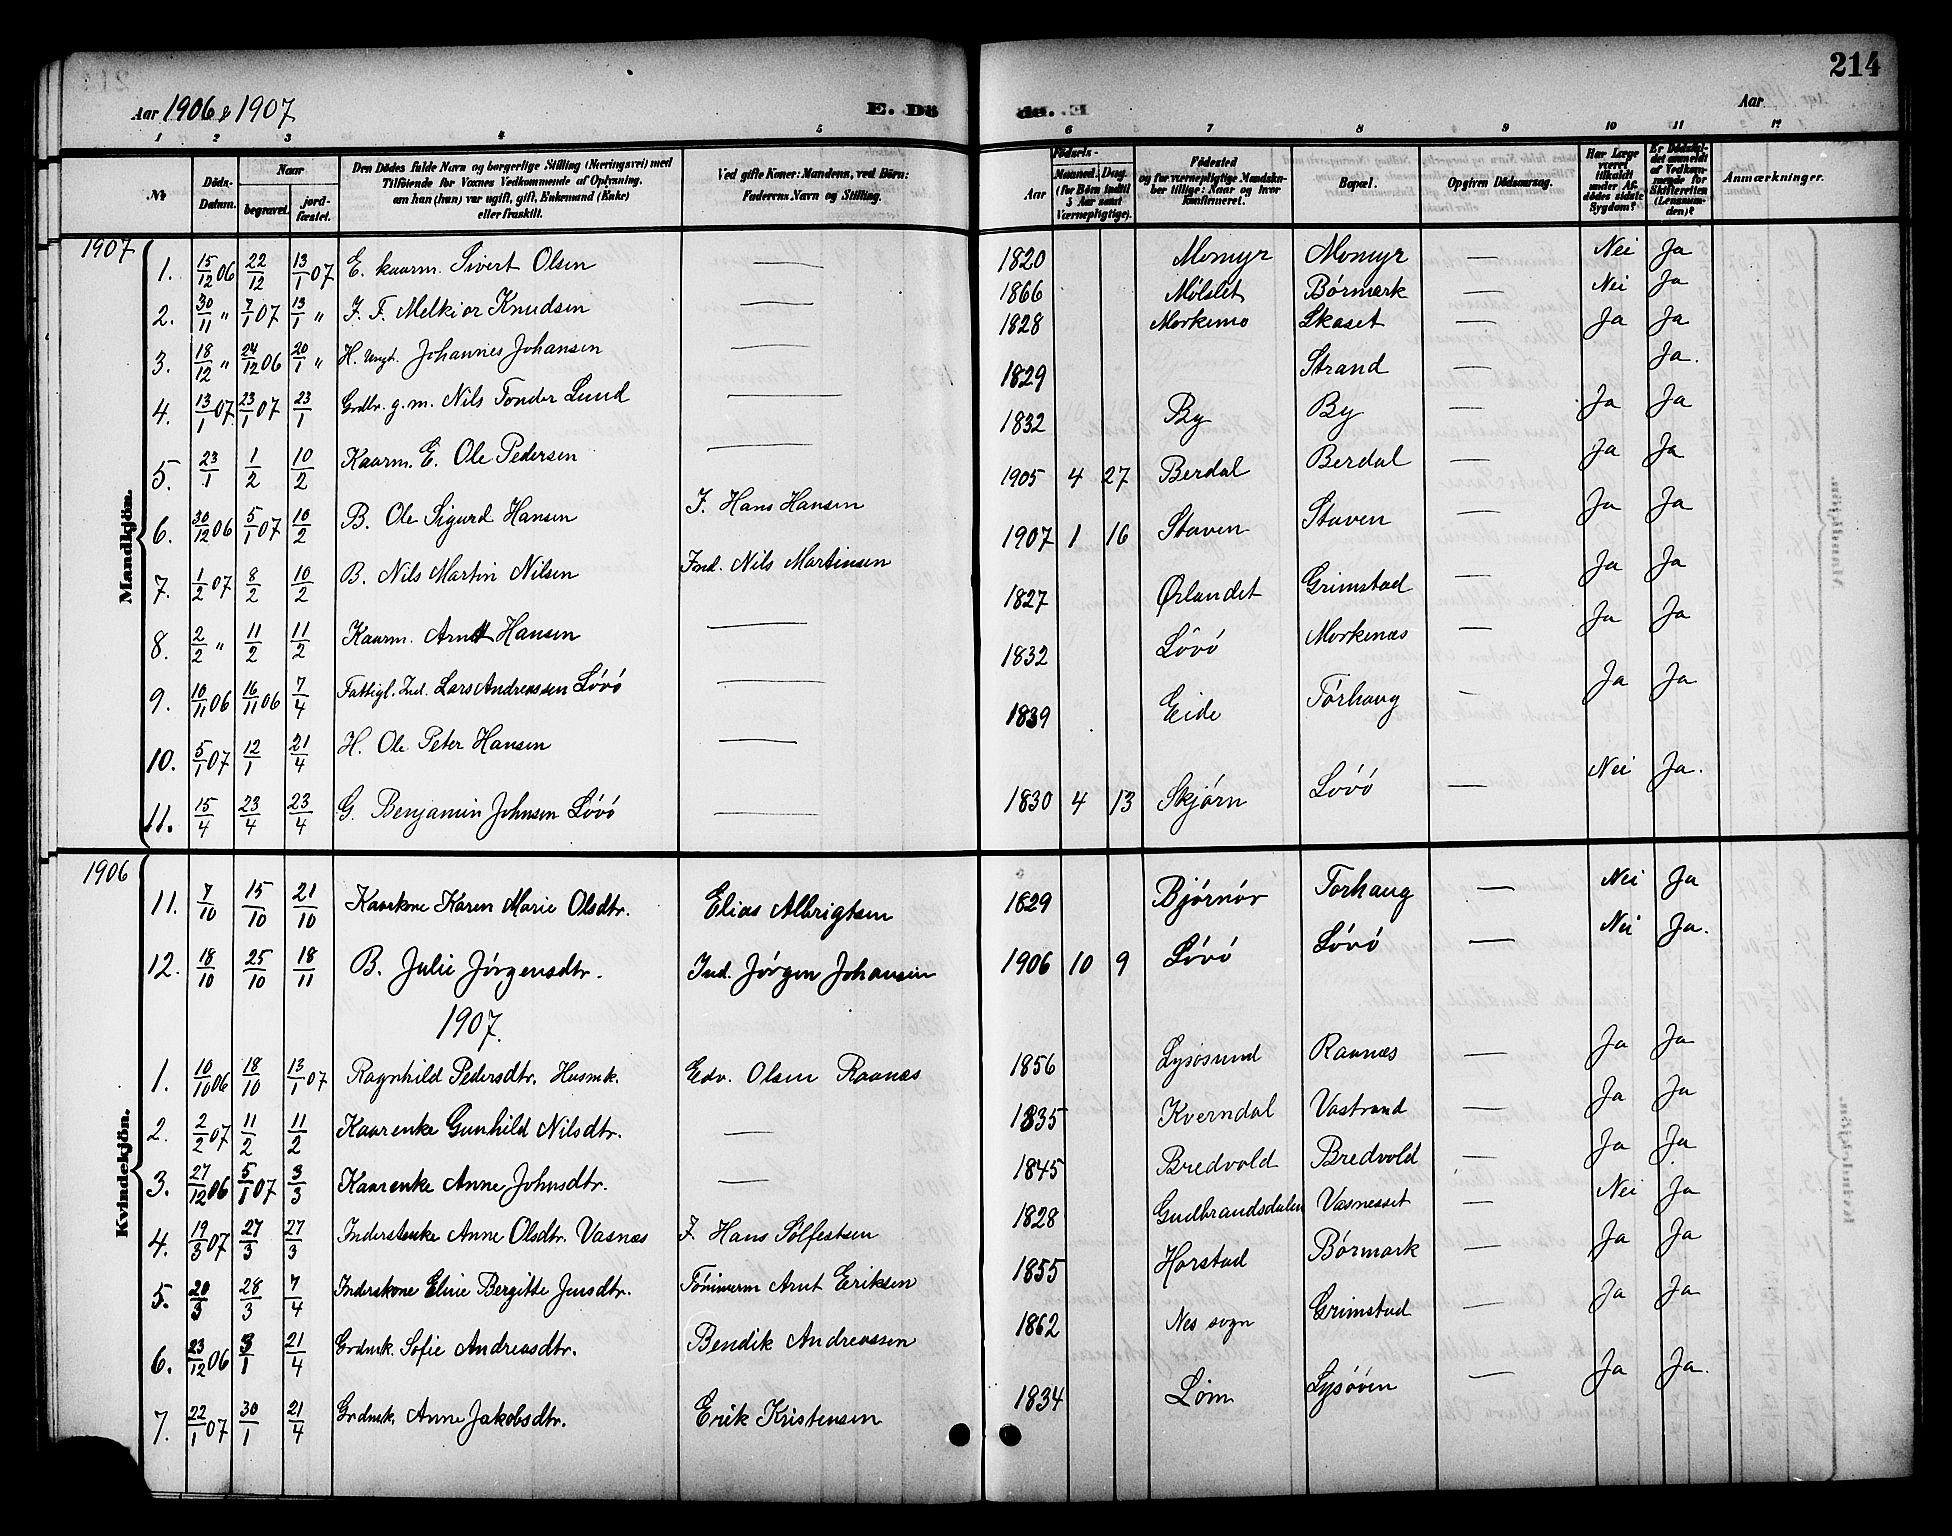 214
Aar 1906 & 1907
E. Dö
de. E.
Aar
1 2 3 4 5 6 7 8 9 10 11 12
№
Döds-Datum.
Naar
begravet.
jord-fæstet.
Den Dödes fulde Navn og borgerlige Stilling (Næringsvei) med
Tilföiende for Voxnes Vedkommende af Oplysning,
om han (hun) var ugift, gift, Enkemand (Enke)
eller fraskilt.
Ved gifte Koner: Mandens, ved Börn:
Faderens Navn og Stilling.
Födsels-
Aar
Maaned. Dag.
(for Börn indtil
5 Aar samt
Værnepligtige).
Födested
og for værnepligtige Mandska-
ber tillige: Naar og hvor
konfirmeret.
Bopæl.
Opgiven Dödsaarsag.
Har Læge
været
tilkaldt
under Af-
dödes sidste
Sygdom?
Er Dödsfal-
det anmeldt
af Vedkom-
mende for
Skifteretten
(Lensman-
den)?
Anmærkninger.
Mandkjön.
1907
1. 15/12 06 22/12 13/1 07 E. kaarm. Sivert Olsen — 1820 Momyr Momyr — Nei Ja
2. 30/11 " 7/1 07 13/1 " I. F. Melkior Knudsen — 1866 Mølslet Børmark — Nei Ja
3. 18/12 " 24/12 06 20/1 " H. Ungk. Johannes Johansen — 1828 Morkemo Skaset — Ja Ja
4. 13/1 07 23/1 07 23/1 Grdbr. g. m. Nils Tønder Lund — 1829 Strand — Ja.
5. 23/1 1/2 10/2 Kaarm. E. Ole Pedersen — 1832 By By — Ja Ja
6. 30/12 06 5/1 07 10/2 B. Ole Sigurd Hansen I. Hans Hansen 1905 4 27 Berdal Berdal — Ja Ja
7. 1/2 07 8/2 10/2 B. Nils Martin Nilsen Ind. Nils Martinsen 1907 1 16 Staven Staven — Ja Ja
8. 2/2 " 11/2 11/2 Kaarm. Arnt Hansen — 1827 Ørlandet Grimstad — Ja Ja
9. 10/11 06 16/11 06 7/4 Fattigl. Ind. Lars Andreassen Løvø — 1832 Løvø Morkenæs — Ja Ja
10. 5/1 07 12/1 21/4 H. Ole Peter Hansen — 1839 Eide Tørhaug — Ja Ja
11. 15/4 23/4 23/4 G. Benjamin Johnsen Løvø — 1830 4 13 Skjørn Løvø — Nei Ja.
Kvindekjön.
1906
11. 7/10 15/10 21/10 Kaarkone Karen Marie Olsdtr. Elias Albrigtsen 1829 Bjørnør Torhaug — Nei Ja
12. 18/10 25/10 18/11 B. Julie Jørgensdtr. Ind. Jørgen Johansen 1906 10 9 Løvø Løvø — Nei Ja.
1907.
1. 10/10 06 18/10 13/1 07 Ragnhild Pedersdtr. Husmk. Edv. Olsen Raanæs 1856 Lysøsund Raanæs — Ja Ja
2. 2/2 07 11/2 11/2 Kaarenke Gunhild Nilsdtr. — 1835 Kverndal Vastrand — Ja Ja
3. 27/12 06 5/1 07 3/3 Kaarenke Anne Johnsdtr. — 1845 Bredvold Bredvold — Ja Ja
4. 19/3 07 27/3 27/3 Inderstenke Anne Olsdtr. Vasnæs I. Hans Sølfestsen 1828 Gudbrandsdalen Vasnesset — Nei Ja
5. 20/3 28/3 7/4 Inderskone Eline Bergitte Jensdtr. Tømmerm Arnt Eriksen 1855 Harstad Børmark — Ja Ja
6. 23/12 06 3/1 21/4 Grdmk. Sofie Andreasdtr. Bendik Andreassen 1862 Nes sogn Grimstad — Ja Ja
7. 22/1 07 30/1 21/4 Grdmk. Anne Jakobsdtr. Erik Kristensen 1834 Løm Lysøven — Ja Ja.